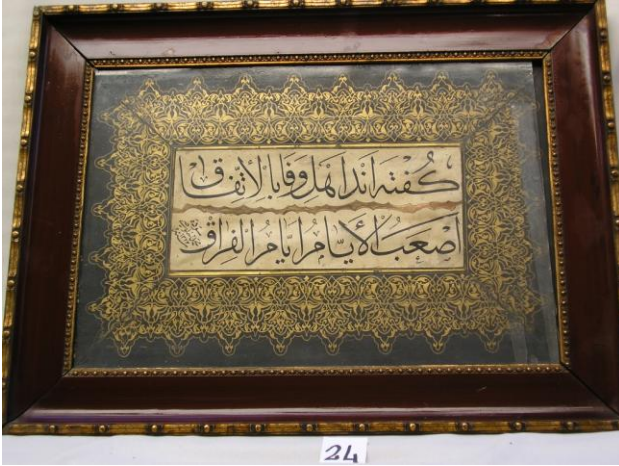 كُفْتَه اَنْد اَهْلِ وَفَا بِالْاِتِّفَاق
اَصْعَبُ الْأَيَّامِ اَيَّامُ الْفِرَاق
24